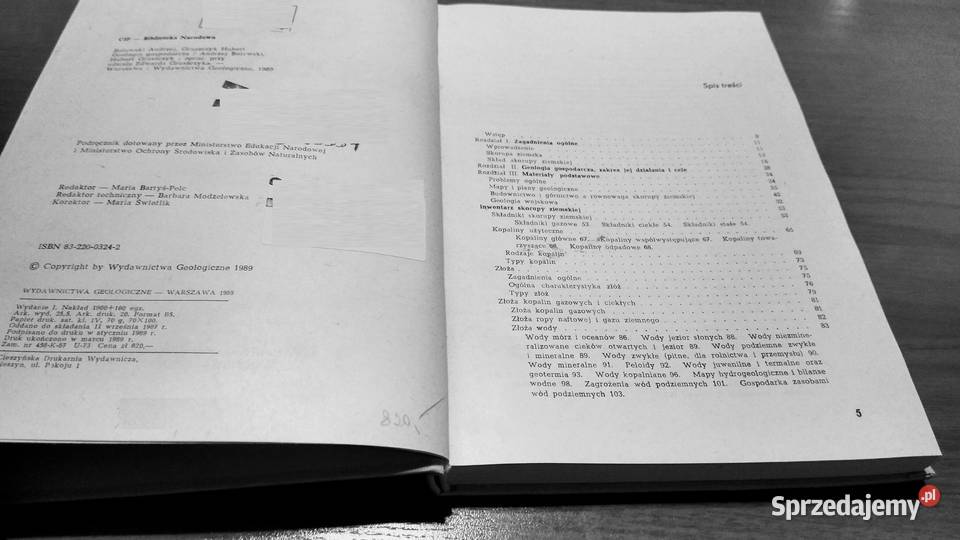 CIP — Biblioteka Narodowa
Bolewski Andrzej, Gruszczyk Hubert
Geologia gospodarcza / Andrzej Bolewski,
Hubert Gruszczyk ; oprac. przy
udziale Edwarda Gruszczyka. —
Warszawa : Wydawnictwa Geologiczne, 1989
Podręcznik dotowany przez Ministerstwo Edukacji Narodowej
i Ministerstwo Ochrony Środowiska i Zasobów Naturalnych
Redaktor — Maria Barryś-Pelc
Redaktor techniczny — Barbara Modzelewska
Korektor — Maria Świetlik
ISBN 83-220-0324-2
© Copyright by Wydawnictwa Geologiczne 1989
WYDAWNICTWA GEOLOGICZNE — WARSZAWA 1989
Wydanie I. Nakład 1900+100 egz.
Ark. wyd. 25,5. Ark. druk. 20. Format B5.
Papier druk. sat. kl. IV, 70 g, 70×100.
Oddano do składania 11 września 1987 r.
Podpisano do druku w styczniu 1989 r.
Druk ukończono w marcu 1989 r.
Zam. nr 458-K-87 U-73 Cena zł 820,—
Cieszyńska Drukarnia Wydawnicza,
Cieszyn, ul. Pokoju 1
820,-
Spis treści
Wstęp 9
Rozdział I. Zagadnienia ogólne 11
Wprowadzenie 11
Skorupa ziemska 12
Skład skorupy ziemskiej 16
Rozdział II. Geologia gospodarcza, zakres jej działania i cele 28
Rozdział III. Materiały podstawowe 34
Problemy ogólne 34
Mapy i plany geologiczne 35
Budownictwo i górnictwo a równowaga skorupy ziemskiej 42
Geologia wojskowa 52
Inwentarz skorupy ziemskiej 53
Składniki skorupy ziemskiej 53
Składniki gazowe 53. Składniki ciekłe 54. Składniki stałe 54.
Kopaliny użyteczne 65
Kopaliny główne 67. Kopaliny współwystępujące 67. Kopaliny towa-
rzyszące 68. Kopaliny odpadowe 68.
Rodzaje kopalin 69
Typy kopalin 73
Złoża 75
Zagadnienia ogólne 75
Ogólna charakterystyka złóż 76
Typy złóż 79
Złoża kopalin gazowych i ciekłych 81
Złoża kopalin gazowych 81
Złoża ropy naftowej i gazu ziemnego 82
Złoża wody 83
Wody mórz i oceanów 86. Wody jezior słonych 88. Wody niezmine-
ralizowane cieków otwartych i jezior 89. Wody podziemne zwykłe
i mineralne 89. Wody zwykłe (pitne, dla rolnictwa i przemysłu) 90.
Wody mineralne 91. Peloidy 92. Wody juwenilne i termalne oraz
geotermia 93. Wody kopalniane 96. Mapy hydrogeologiczne i bilanse
wodne 98. Zagrożenia wód podziemnych 101. Gospodarka zasobami
wód podziemnych 103.
5
Sprzedajemy.pl